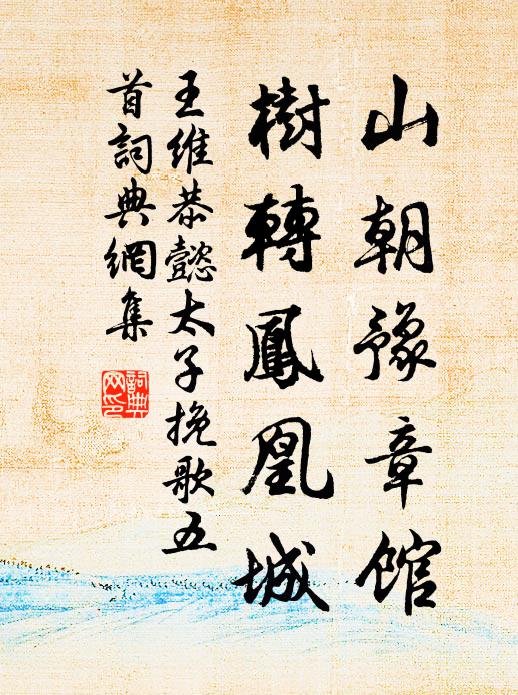 山朝豫章館
樹轉鳳凰城
王維恭懿太子挽歌五
首詞典網集
詞典
网印